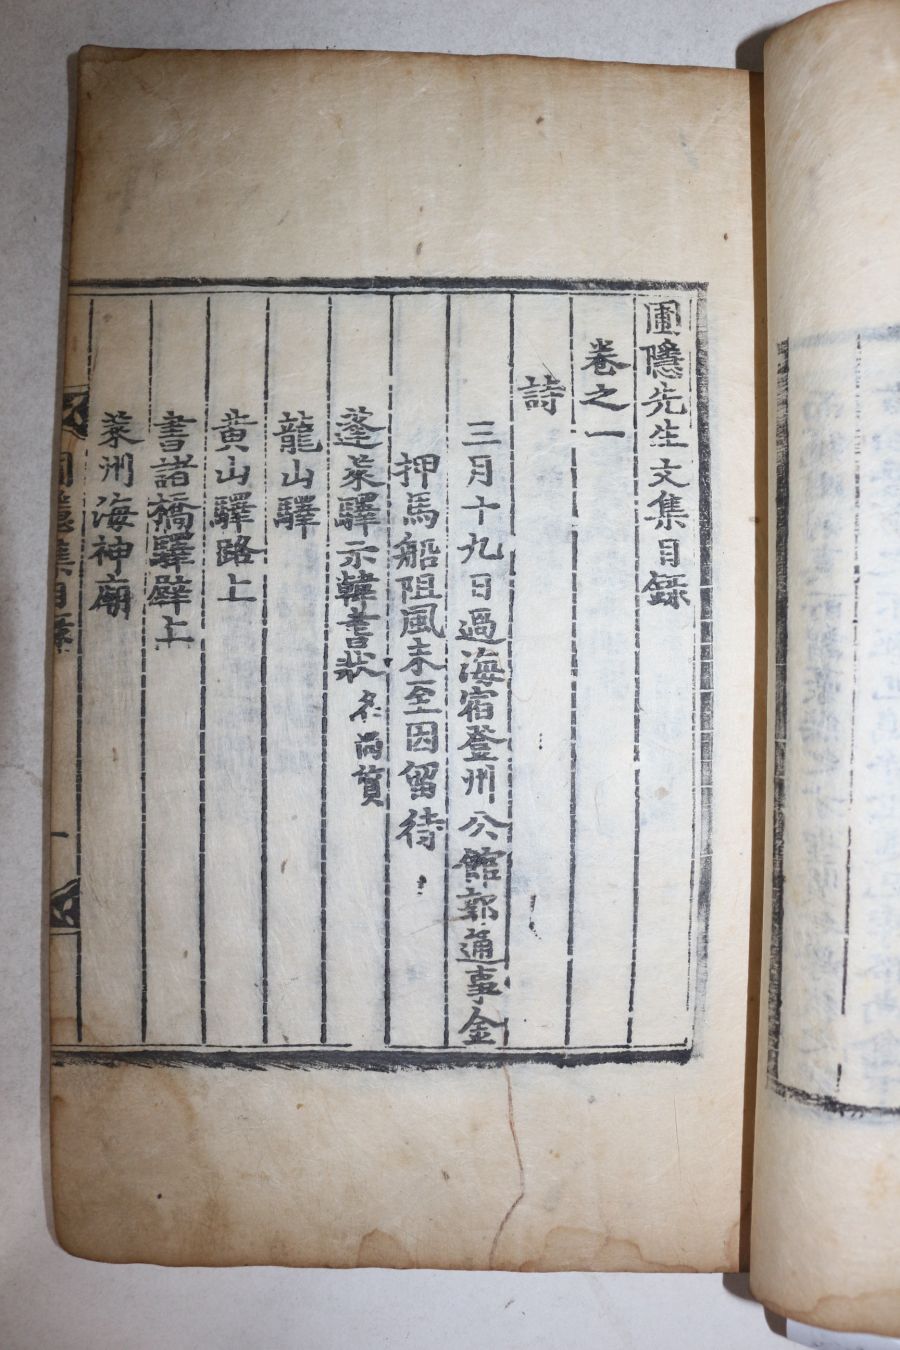 圃隱先生文集目録
卷之一
詩
三月十九日過海宿登州公館郭通事金
押馬船阻風未至因留待
蓬萊驛示韓書狀 名尚質
龍山驛
黃山驛路上
書諸橋驛壁上
萊州海神廟